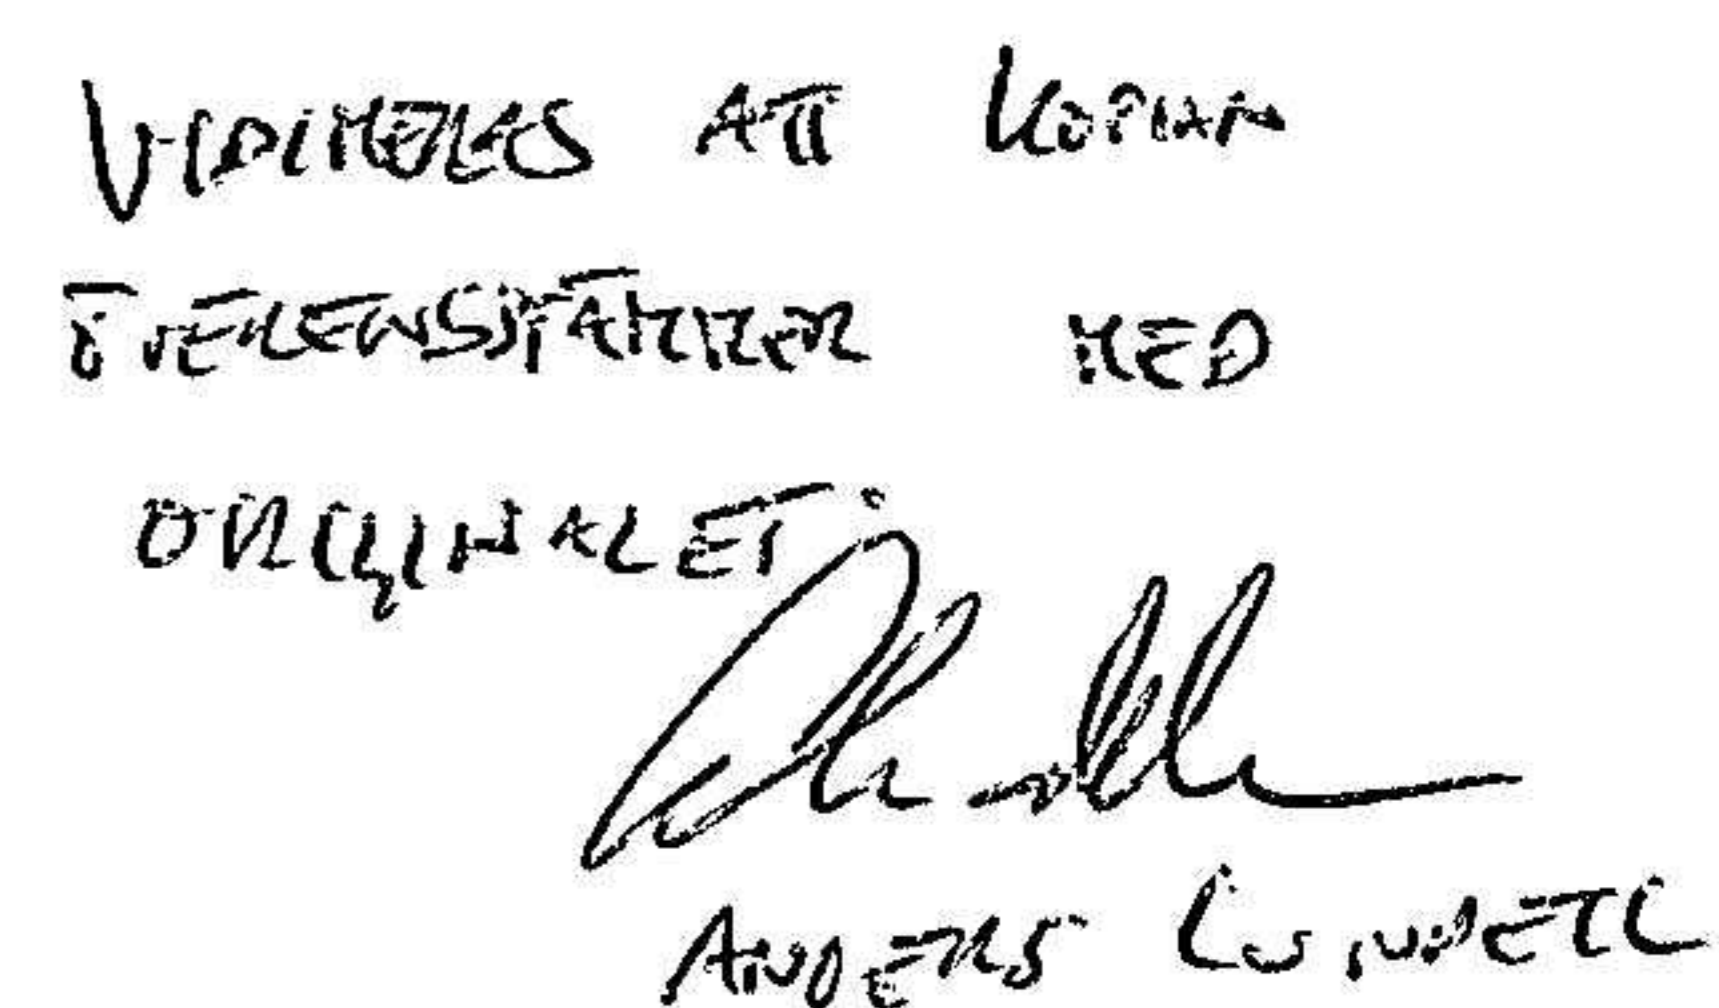 VIDIMERAS ATT KOPIAN
ÖVERENSSTÄMMER MED
ORIGINALET.
ANDERS LUNDELL